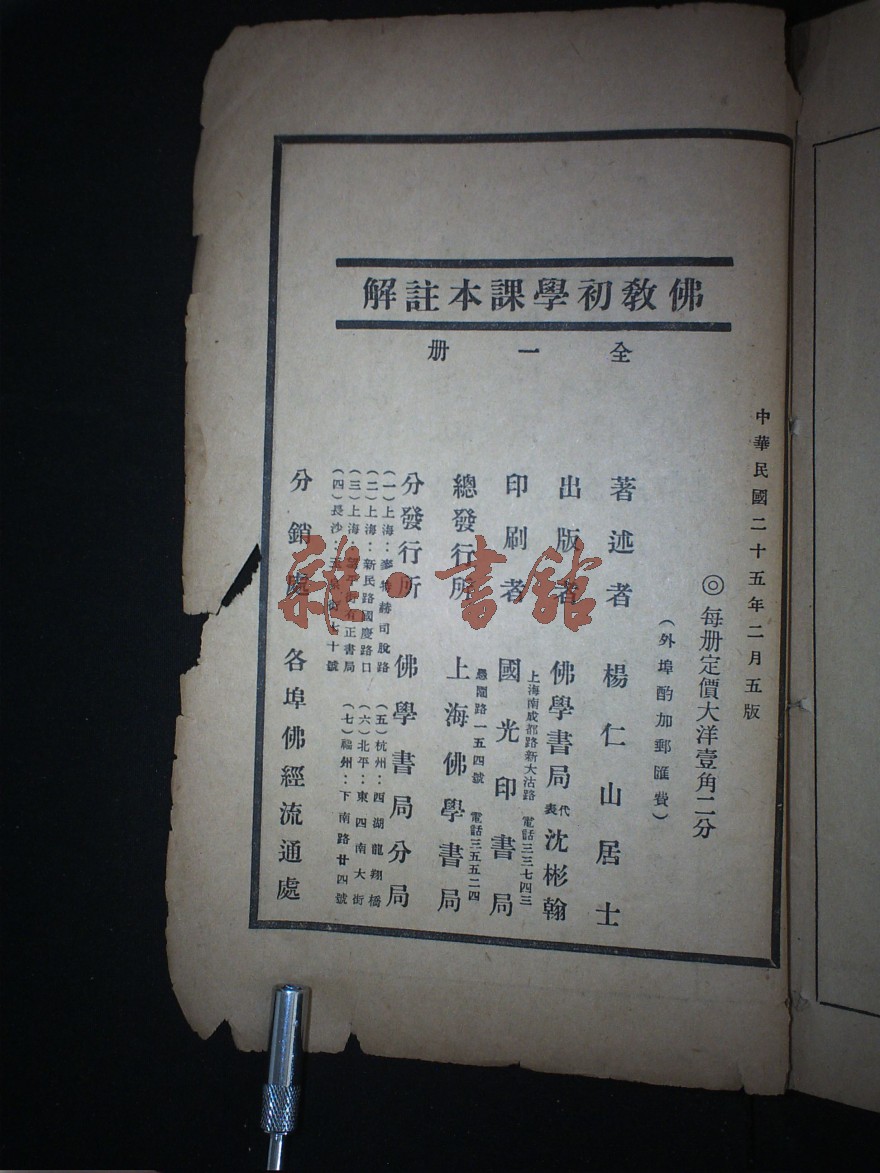 中華民國二十五年二月五版
佛教初學課本註解
全一册
◎每册定價大洋壹角二分
(外埠酌加郵匯費)
著述者 楊仁山居士
出版者 佛學書局 代表 沈彬翰
上海南成都路新大沽路 電話三三七四三
印刷者 國光印書局
愚園路一五四號 電話三五五二四
總發行所 上海佛學書局
分發行所 佛學書局分局
(一)上海:麥特赫司脫路
(二)上海:新民路國慶路口
(三)上海:街有正書局
(四)長沙:七十號
(五)杭州:西湖龍翔橋
(六)北平:東四南大街
(七)福州:下南路廿四號
分銷處 各埠佛經流通處
雜·書館